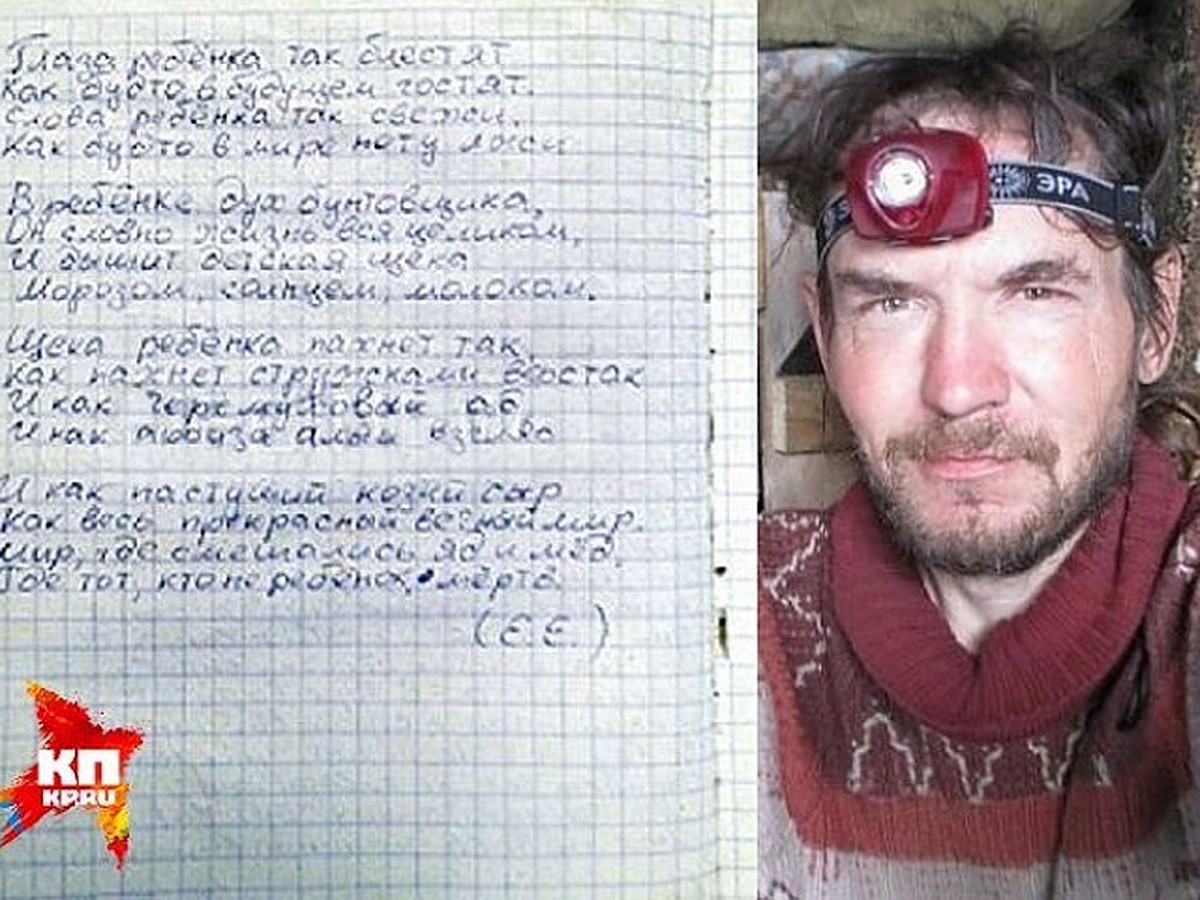 Глаза ребёнка так блестят
Как будто в будущем гостят.
Слова ребёнка так свежи,
Как будто в мире нету лжи
В ребёнке дух бунтовщика,
Он словно жизнь вся целиком,
И дышит детская щека
Морозом, солнцем, молоком.
Щека ребёнка пахнет так,
Как пахнет стружками верстак
И как черемуховый
И как арбуза алый
И как пастуший козий сыр
Как весь прекрасный мир.
Мир, где смешались яд и мёд,
Где тот, кто не ребёнок, мёртв.
(Е.Е.)
КП
KP.RU
ЭРА